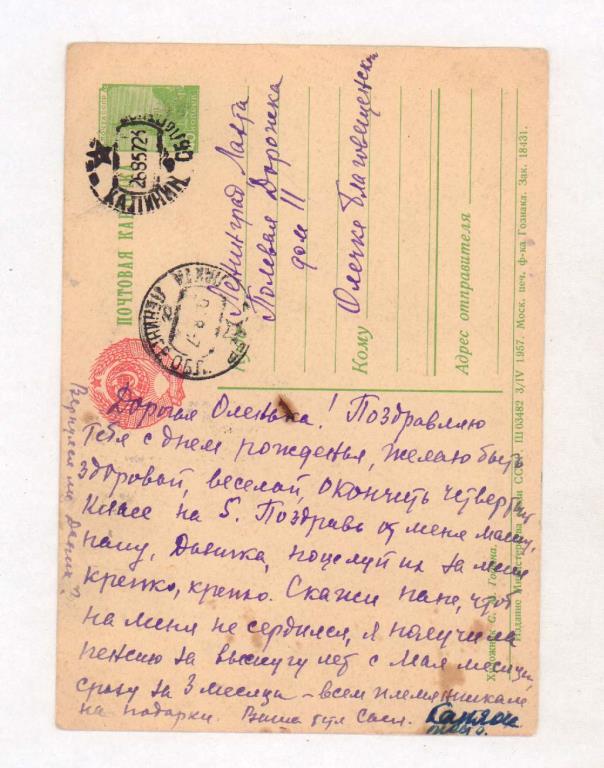 ПОЧТОВАЯ КАР
КАЛИНИН
26857
Куда
Ленинград Лахта
Полевая Дорожка
дом 11
Кому Олечке Благовещенской
Адрес отправителя
Дорогая Оленька! Поздравляю
тебя с днем рожденья, желаю быть
здоровой, веселой, окончить четвертый
класс на 5. Поздравь от меня маму,
папу, поцелуй их за меня
крепко, крепко. Скажи папе, чтоб
на меня не сердился, я получила
пенсию за выслугу лет с мая месяца,
сразу за 3 месяца – всем племянникам
на подарки. Ваша тетя
Вернулся ли
Художник С. Година.
Издание Министерства связи СССР. Ш03482 3/IV 1957. Моск. печ. ф-ка Гознака. Зак. 18431.